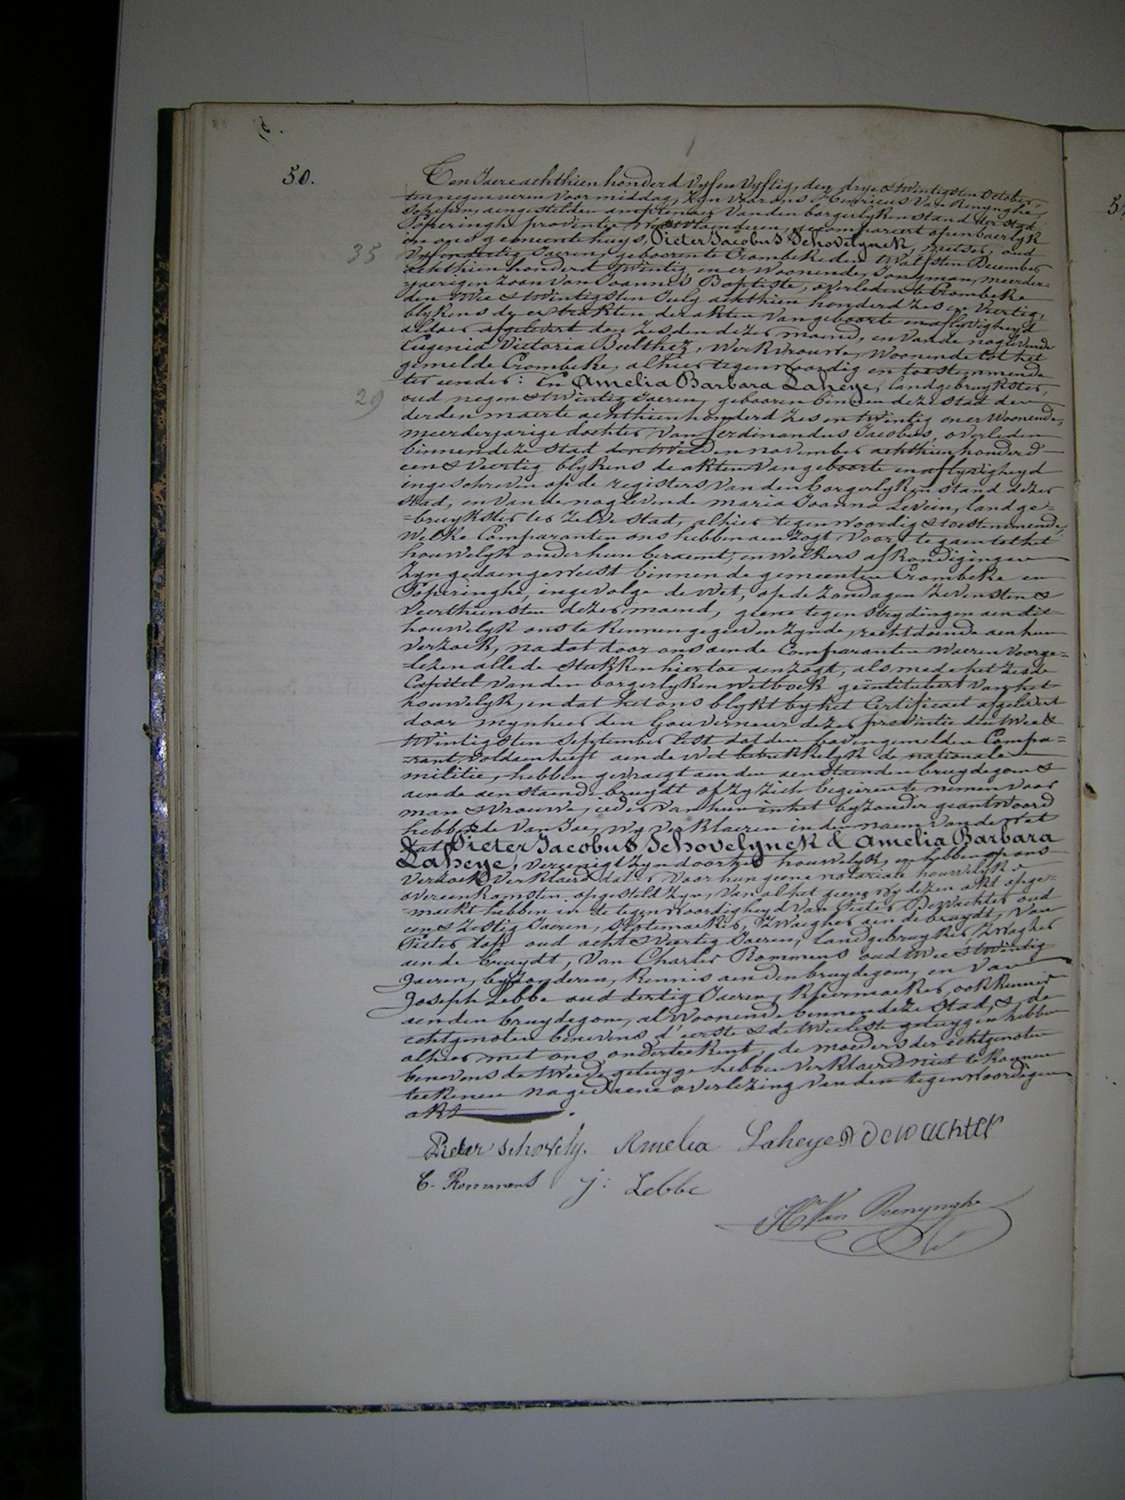 50.
Ten Jaere achthien honderd Vyf en Vyftig, den drye & Twintigsten October,
ten negen uren voormiddag, Zyn voor ons Henricus Van Renynghe,
Schepen, aengestelden amptenaer Van den borgerlyken stand der Stad
Poperinghe provintie Westvlaenderen, gecompareert openbaerlyk
in ons gemeente huys, Pieter Jacobus Schovelynck, metser, oud
35
Vyf en dertig Jaeren, geboren te Crombeke den Twalfsten December
achthien honderd Twintig, en er Woonende, Jongman, meerder-
jaerigen zoon van Joannes Baptiste, overleden te Crombeke
den Twee & Twintigsten July achthien honderd Zes en Veertig,
blykens de extrakten der akten van geboorte en aflyvigheyd
aldaer afgelevert den Zesden dezer maend, en van de nagelevende
Eugenia Victoria Bulthez, Werkvrouwe, Woonende tot het
gemelde Crombeke, alhier tegenwoordig en toestemmende
ter eender: En Amelia Barbara Laheye, landgebruykster,
29
oud negen & Twintig Jaeren, geboren binnen deze stad den
derden maerte achthien honderd Zes en Twintig en er Woonende,
meerderjarige dochter van Ferdinandus Jacobus, overleden
binnen deze stad den november achthien honderd
een & Veertig blykens de akten van geboorte en aflyvigheyd
ingeschreven op de registers van den borgerlyken stand dezer
stad, en van de nagelevende Maria Joanna Levein, landge-
-bruykster ter zelve stad, alhier tegenwoordig & toestemmende,
Welke Comparanten ons hebben aenzogt voorts te gaen tot het
houwelyk onder hun beraemt, en welkers afkondigingen
Zyn gedaen geweest binnen de gemeenten Crombeke en
Poperinghe, ingevolge de Wet, op de Zondagen Zevensten &
Veerthiensten dezer maend, geene tegenstrydingen aen dit
houwelyk ons te kennen gegeven Zynde, recht doende aen hun
Verzoek, na dat door ons aen de Comparanten Waeren Voorge-
-lezen alle de stukken hiertoe aenzogt, als mede het Zesde
Capittel van den borgerlyken Wetboek geïntituleert Van het
houwelyk, en dat het ons blykt by het Certificaet afgelevert
door mynheer den Gouverneur dezer provintie den Twee &
Twintigsten September lest, dat den bovengemelden Compa-
-rant, voldaen heeft aen de Wet betrekkelyk de nationale
militie, hebben gevraegt aen den aenstaenden bruydegom &
aen de aenstaende bruydt of zy zich begeiren te nemen voor
man & Vrouwe; ieder van hun in het byzonder geantwoord
hebbende van Jae, Wy verklaeren in den naem van de Wet
dat Pieter Jacobus Schovelynck & Amelia Barbara
Laheye, vereenigt zyn door het houwelyk, en hebben op ons
Verzoek Verklaerd dat er voor hun geene notariale houwelyks
overeenkomsten opgesteld zyn, van al het gene wy dezen akt opge-
-maekt hebben in de tegenwoordigheyd van Pieter Dewachter oud
een & Zestig Jaeren, Zwaegher aen de bruydt, Van
Pieter oud acht & Veertig Jaeren, landgebruyker, Zwagher
aen de bruydt, Van Charles Rommens oud Twee & Twintig
Jaeren, byzonderen, kennis aen den bruydegom, en Van
Joseph Lebbe oud dertig Jaeren, kleermaeker, ook kennis
aen den bruydegom, al Woonende binnen deze Stad, & de
echtgenoten benevens d'eerste & de Twee leste getuygen hebben
alhier met ons onderteekent, de moeders der echtgenoten
benevens de Tweede getuyge hebben verklaerd niet te konnen
teekenen na gedaene overlezing van den tegenwoordigen
akt
Pieter Schovely. Amelia Laheye P Dewachter
C. Rommens j: Lebbe
H Van Renynghe